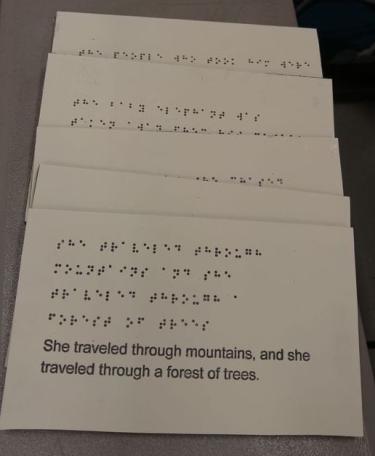 ⠞⠓⠑ ⠏⠑⠕⠏⠇⠑ ⠺⠓⠕ ⠞⠕⠕⠅ ⠓⠊⠍ ⠺⠑⠗⠑
⠞⠓⠑ ⠃⠁⠃⠽ ⠑⠇⠑⠏⠓⠁⠝⠞ ⠺⠁⠎
⠞⠁⠅⠑⠝ ⠁⠺⠁⠽ ⠋⠗⠕⠍
⠎⠓⠑ ⠞⠗⠁⠧⠑⠇⠑⠙ ⠞⠓⠗⠕⠥⠛⠓
⠍⠕⠥⠝⠞⠁⠊⠝⠎ ⠁⠝⠙ ⠎⠓⠑
⠞⠗⠁⠧⠑⠇⠑⠙ ⠞⠓⠗⠕⠥⠛⠓ ⠁
⠋⠕⠗⠑⠎⠞ ⠕⠋ ⠞⠗⠑⠑⠎
She traveled through mountains, and she
traveled through a forest of trees.